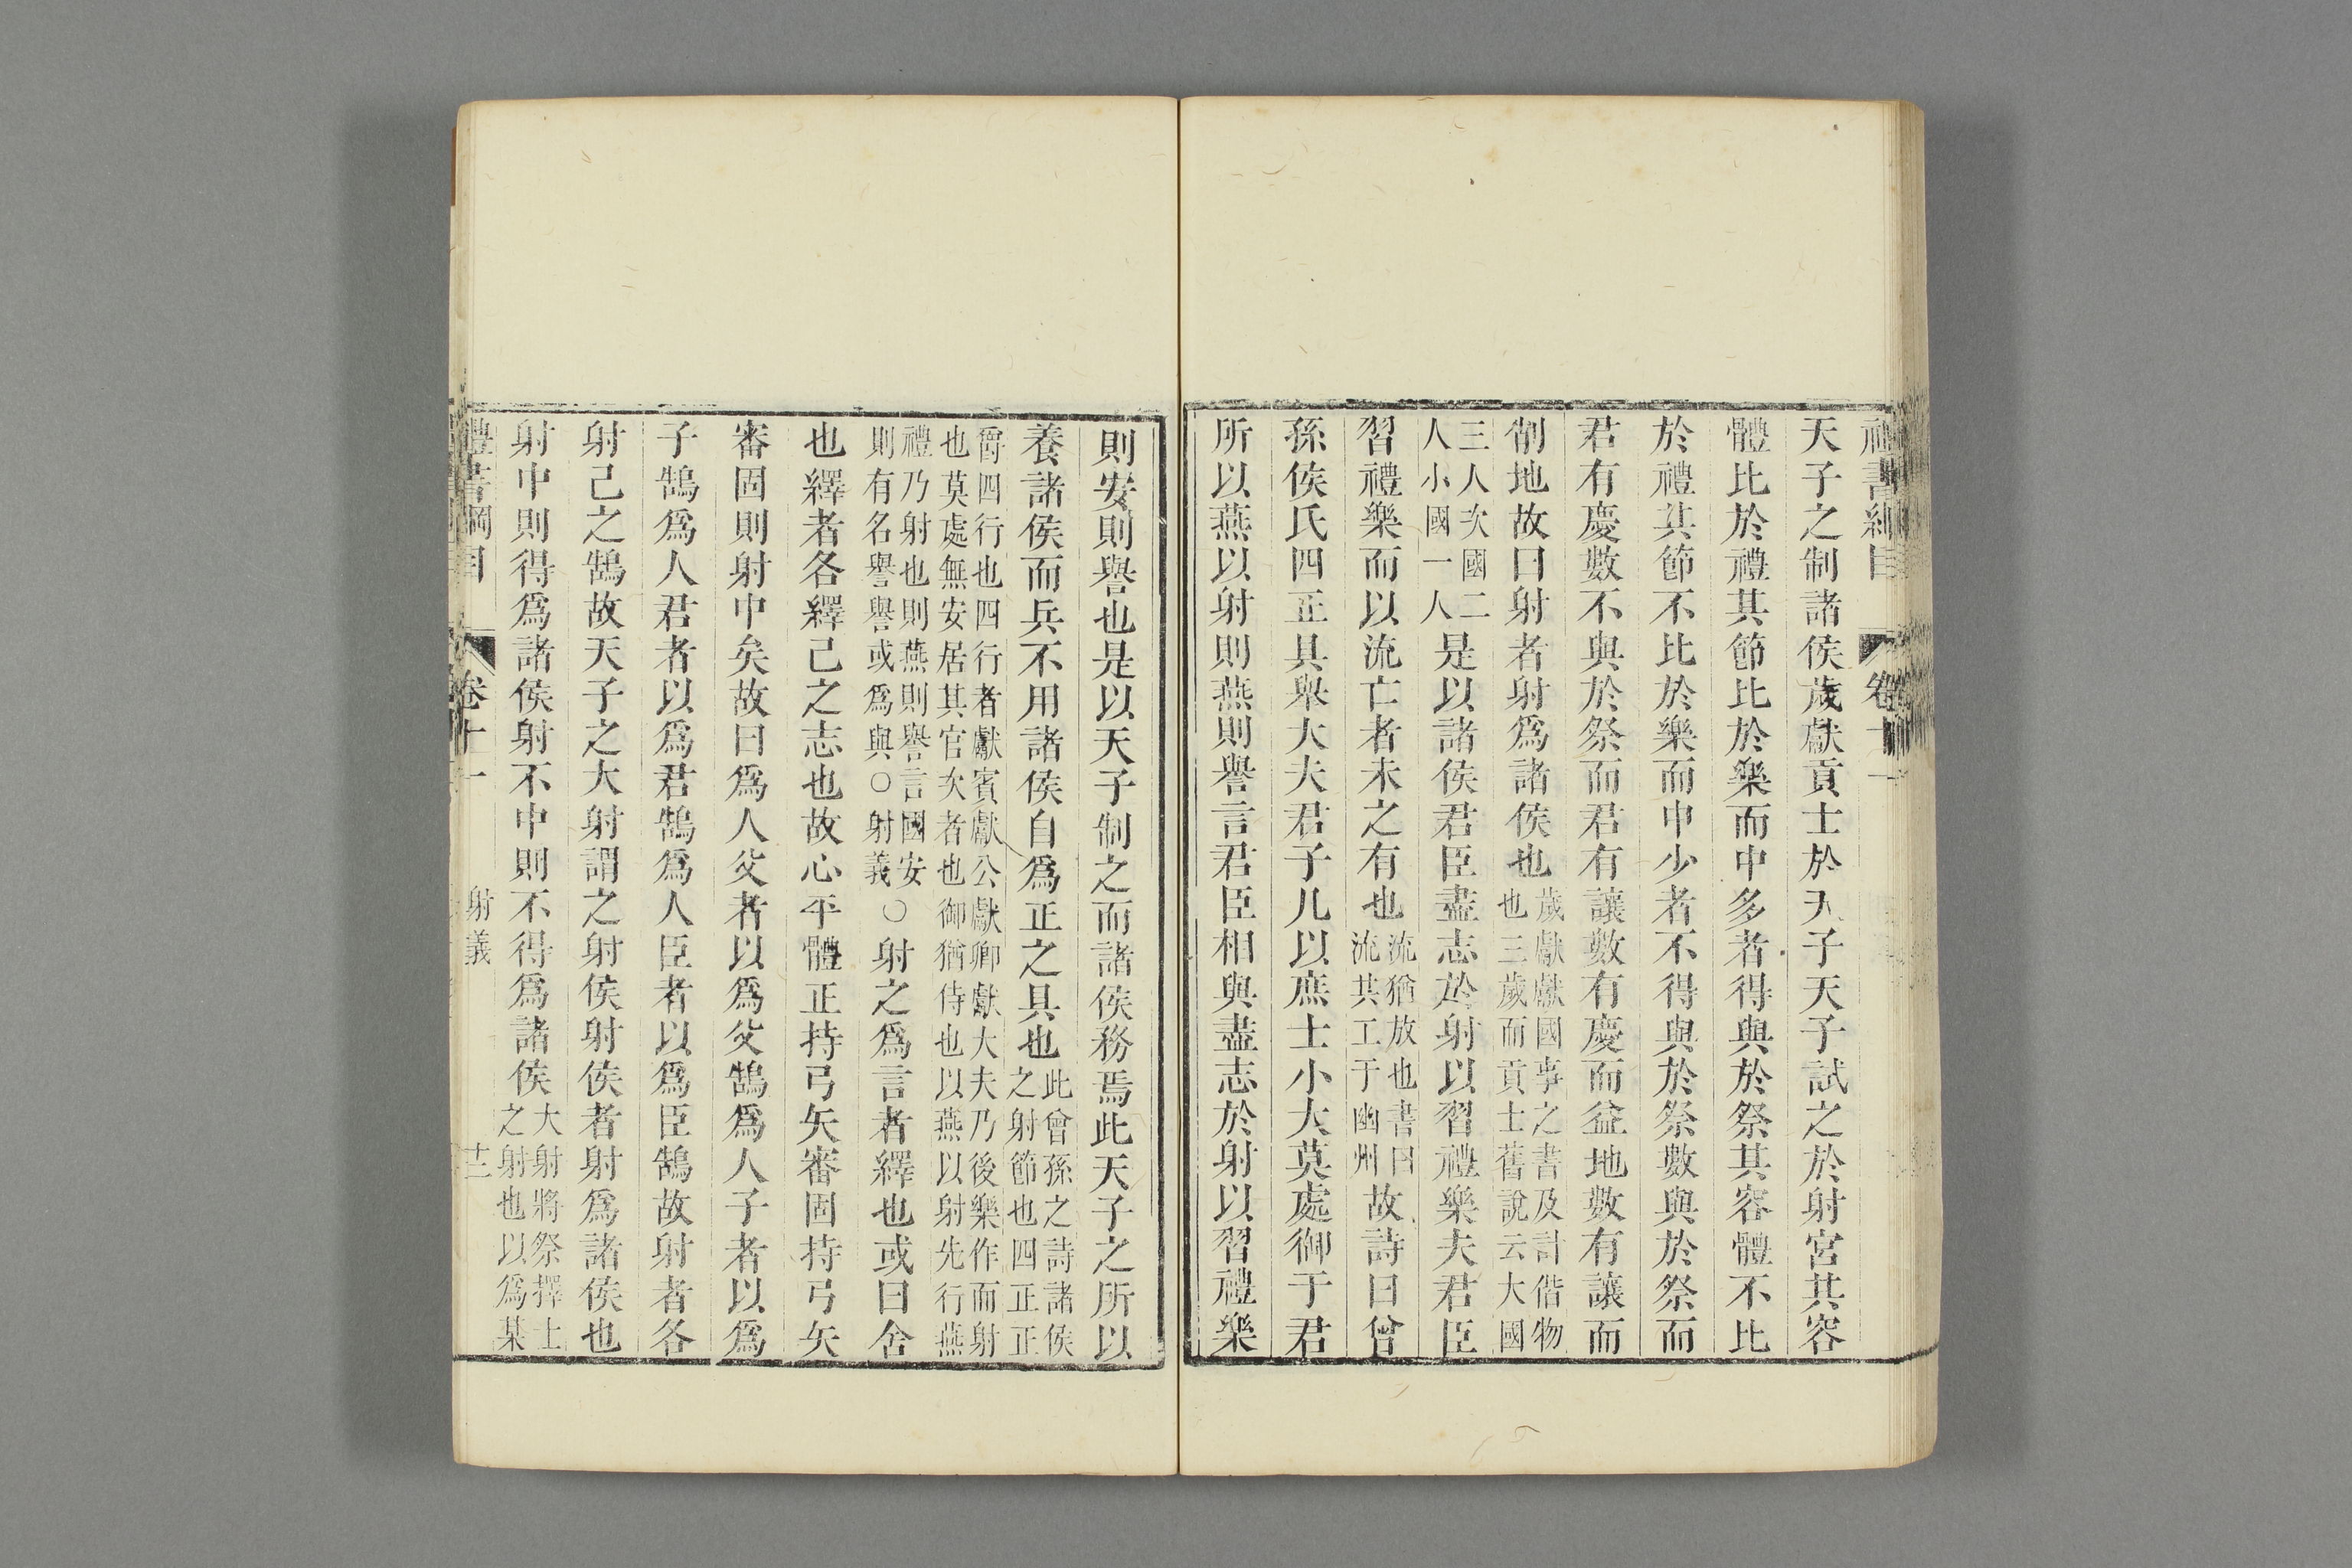 禮書綱目 卷十一
天子之制諸侯歲獻貢士於天子天子試之於射宮其容
體比於禮其節比於樂而中多者得與於祭其容體不比
於禮其節不比於樂而中少者不得與於祭數與於祭而
君有慶數不與於祭而君有讓數有慶而益地數有讓而
削地故曰射者射爲諸侯也歲獻獻國事之書及計偕物也三歲而貢士舊說云大國
三人次國二人小國一人是以諸侯君臣盡志於射以習禮樂夫君臣
習禮樂而以流亡者未之有也流猶放也書曰流共工于幽州故詩曰曾
孫侯氏四正具舉大夫君子凡以庶士小大莫處御于君
所以燕以射則燕則譽言君臣相與盡志於射以習禮樂
則安則譽也是以天子制之而諸侯務焉此天子之所以
養諸侯而兵不用諸侯自爲正之具也此曾孫之詩諸侯之射節也四正正
爵四行也四行者獻賓獻公獻卿獻大夫乃後樂作而射也莫處無安居其官次者也御猶侍也以燕以射先行燕
禮乃射也則燕則譽言國安則有名譽譽或爲與○射義○射之爲言者繹也或曰舍
也繹者各繹己之志也故心平體正持弓矢審固持弓矢
審固則射中矣故曰爲人父者以爲父鵠爲人子者以爲
子鵠爲人君者以爲君鵠爲人臣者以爲臣鵠故射者各
射己之鵠故天子之大射謂之射侯射侯者射爲諸侯也
射中則得爲諸侯射不中則不得爲諸侯大射將祭擇士之射也以爲某
禮書綱目 卷十一 射義 十二